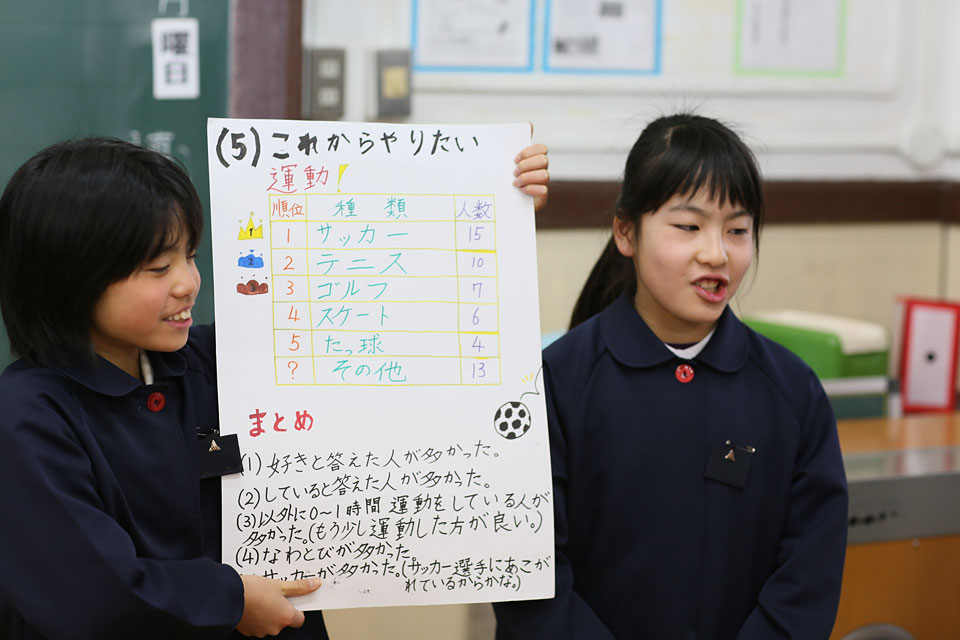 曜日
(5)これからやりたい
運動!
順位 種類 人数
1 サッカー 15
2 テニス 10
3 ゴルフ 7
4 スケート 6
5 たっ球 4
? その他 13
1
2
3
まとめ
(1)好きと答えた人が多かった。
(2)していると答えた人が多かった。
(3)以外に0~1時間運動をしている人が
多かった。(もう少し運動した方が良い。)
(4)なわとびが多かった。
サッカーが多かった。(サッカー選手にあこが
れているからかな。)